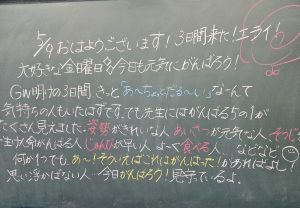 5/9 おはようございます！3日間来た！エライ！
大好きな金曜日🎶今日も元気にがんばろう！
GW明けの3日間 きっと「あ〜ちょっとだる〜い」なーんて
気持ちの人もいたはずです。でも先生にはがんばる5の1が
たくさん見えました。姿勢がきれいな人 あいさつが元気な人 そうじを
生け人がんばる人 じゅんびが早い人 よーく食べる人、などなど
何か1つでも「あー！そういえばこれはがんばった！」があればよし！
思い浮かばない人…今日がんばろう！見守ているよ。